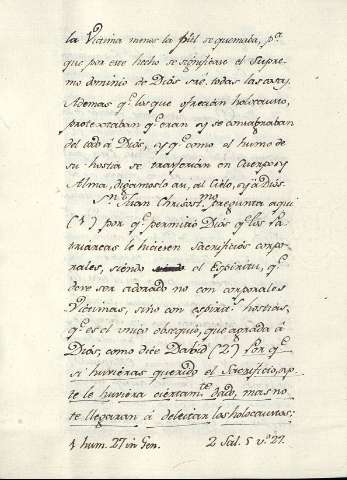 la Victima menos la piel se quemaba, pa.
que por este hecho se significase el Supre
mo dominio de Dios sre. todas las cosas
Ademas q.e los que ofrecian holocausto,
protextaban q.e eran sy se consagraban
del todo á Dios, sy q.e como el humo de
su hostia se transferian en Cuerpo sy
Alma, digamoslo asi, al Cielo, sy á Dios.
Sn. Juan Chrisost.mo pregunta aqui
(1) por q.e permitio Dios q.e los Pa
triarcas le hiciesen Sacrificios corpo
rales, siendo el Espiritu, q.e
deve ser adorado no con corporales
Victimas, sino con espirit.s hostias,
q.e es el unico obsequio, que agrada á
Dios, como dice Dabid (2) Por q.e
si huvieras querido el Sacrificio, yo
te le huviera ciertam.te dado, mas no
te llegaran á deleitar los holocaustos;
1 hum. 27 in Gen. 2 Sal. 5 v.o 27.